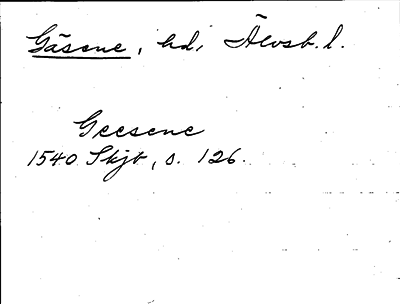 Gäsene, hd, Älvsb. l.
Geesene
1540 Skjb, s. 126.